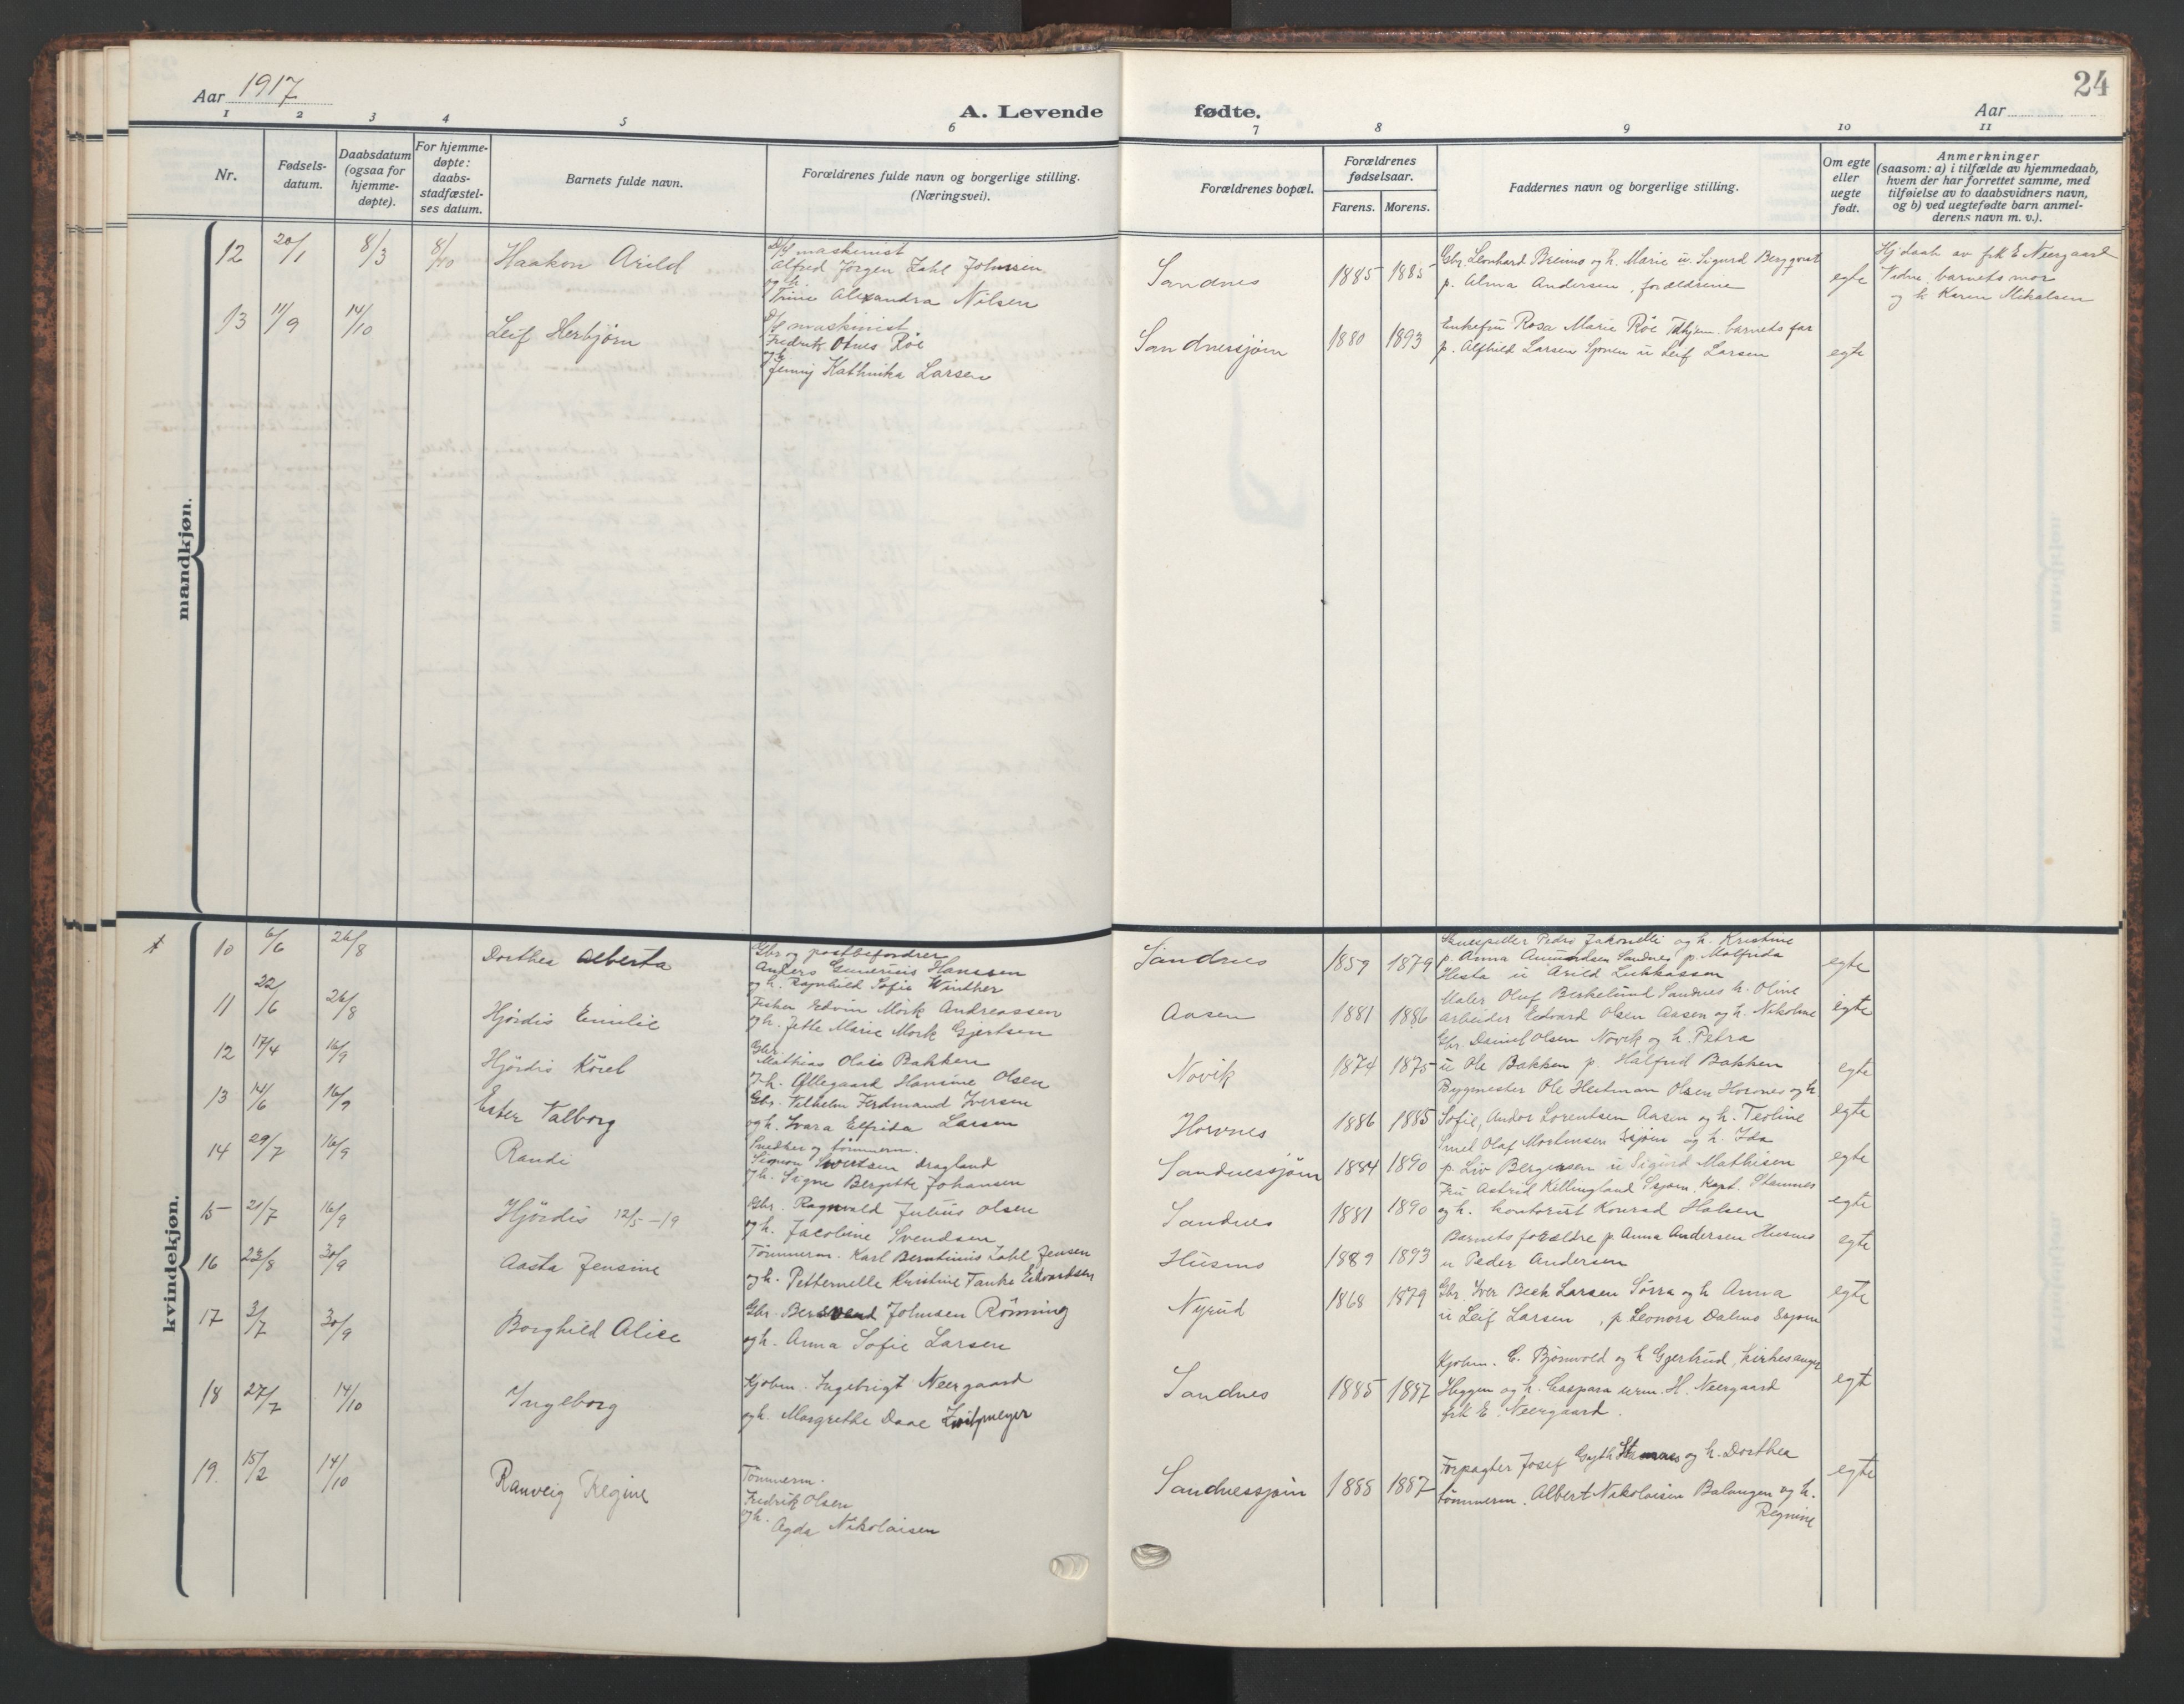 24
Aar 1917
A. Levende fødte.
Aar
1 2 3 4 5 6 7 8 9 10 11
Nr.
Fødsels-
datum.
Daabsdatum
(ogsaa for
hjemme-
døpte).
For hjemme-
døpte:
daabs-
stadfæstel-
ses datum.
Barnets fulde navn.
Forældrenes fulde navn og borgerlige stilling.
(Næringsvei).
Forældrenes bopæl.
Forældrenes
fødselsaar.
Farens. Morens.
Faddernes navn og borgerlige stilling.
Om egte
eller
uegte
født.
Anmerkninger
(saasom: a) i tilfælde av hjemmedaab,
hvem der har forrettet samme, med
tilføielse av to daabsvidners navn,
og b) ved uegtefødte barn anmel-
derens navn m. v.).
mandkjøn.
12 20/1 8/3 8/10 Haakon Arild
D/S maskinist
Alfred Jörgen Zahl Johnsen
og h.
Trine Alexandra Nilsen
Sandnes 1885 1885
Gbr. Leonhard og h. Marie u. Sigurd Bergqvist
p. Alma Andersen, forældrene
egte
Hj daab av frk E Neergaard
Vidne: barnets mor
og h Karen Mikalsen
13 11/9 14/10 Leif Herbjörn
D/S maskinist
Fredrik Otnes Röe
og h.
Jenny Kathinka Larsen
Sandnessjøen 1880 1893
Enkefru Rosa Marie Röe barnets far
p. Alfhild Larsen u Leif Larsen
egte
kvindekjøn.
10 6/6 26/8 Dorthea Alberta
Gbr og postbefordrer
Anders Hanssen
og h. Ragnhild Sofie Winther
Sandnes 1859 1879
Pedro og h. Kristine
p. Anna Amundsen Sandnes p. Malfrida
u Arild Lukkassen
egte
11 22/6 26/8 Hjördis Emilie
Fisker Edvin Mörk Andreassen
og h. Jette Marie Mörk Gjertsen
Aasen 1881 1886
Maler Oluf Birkelund Sandnes h. Oline
Arbeider Edvard Olsen Aasen og h. Nikoline
egte
12 17/4 16/9 Hjördis
Gbr.
Mathias Olais Bakken
og h. Hansine Olsen
Novik 1874 1875
Gbr. Daniel Olsen Novik og h. Petra
u Ole Bakken p. Halfrid Bakken
egte
13 14/6 16/9 Ester Valborg
Gbr. Vilhelm Ferdinand Iversen
og h. Ivara Elfrida Larsen
Horvnes 1886 1885
Bygmester Ole Heitman Olsen Horvnes og h
Sofie, Andor Lorentsen Aasen og h. Teoline
egte
14 29/7 16/9 Randi
Snedker og tömmerm.
Simon Sivertsen Dragland
og h. Signe Bergitte Johansen
Sandnessjøen 1884 1890
Smed Olaf Mortensen Ssjøen og h. Ida
p. Liv Bergersen u Sigurd Mathisen
egte
15 21/7 16/9 Hjördis 12/5-19
Gbr. Ragnvald Julius Olsen
og h. Jacobine Svendsen
Sandnes 1881 1890
Fru Astrid Killingland Ssjøen. Kapt. Stamnes
og h. kontorist Konrad Halsen
egte
16 23/8 30/9 Aasta Jensine
Tömmerm. Karl Berntinius Zahl Jensen
og h. Petternelle Kristine Tanke Edvardsen
Husmo 1889 1893
Barnets forældre p Anna Andersen Husmo
u Peder Andersen
egte
17 3/7 30/9 Borghild Alice
Gbr. Bersvend Johnsen Rönning
og h. Anna Sofie Larsen
Nyrud 1868 1879
Gbr. Iver Beck Larsen Sörra og h Anna
u Leif Larsen , p Leonora Dalmo Ssjøen
egte
18 27/7 14/10 Ingeborg
Kjöbm. Ingebrigt Neergaard
og h. Margrethe Daae Zwilgmeyer
Sandnes 1885 1887
Kjöbm. C. Björnvold og h Gjertrud, kirkesanger
Heggen og h. Caspara urm. H. Neergaard
frk E. Neergaard.
egte
19. 15/2 14/10 Ranveig Regine
Tömmerm.
Fredrik Olsen
og h. Agda Nikolaisen
Sandnessjøen 1888 1887
Forpagter Josef Gyth Stamnes og h. Dorthea
tömmerm. Albert Nikolaisen Balangen og h.
Regnine
egte